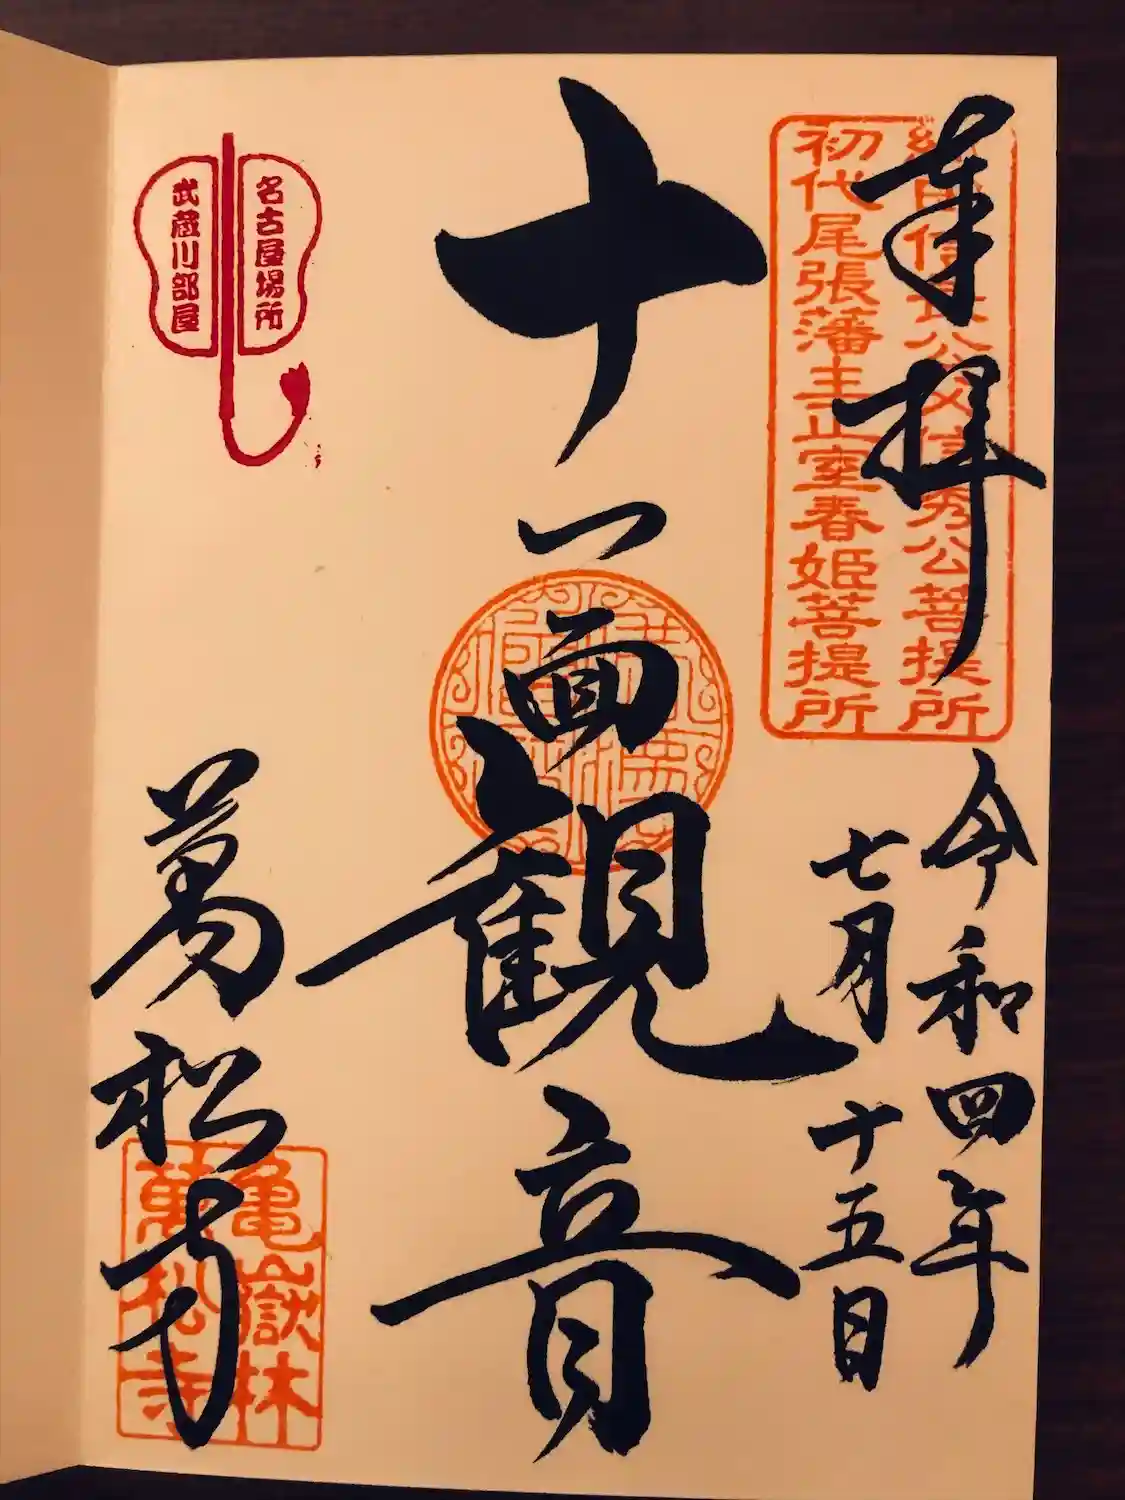 奉拝
織田信長公父信秀公菩提所
初代尾張藩主正室春姫菩提所
令和四年
七月十五日
十一面観音
名古屋場所
武蔵川部屋
萬松寺
亀嶽林
萬松寺